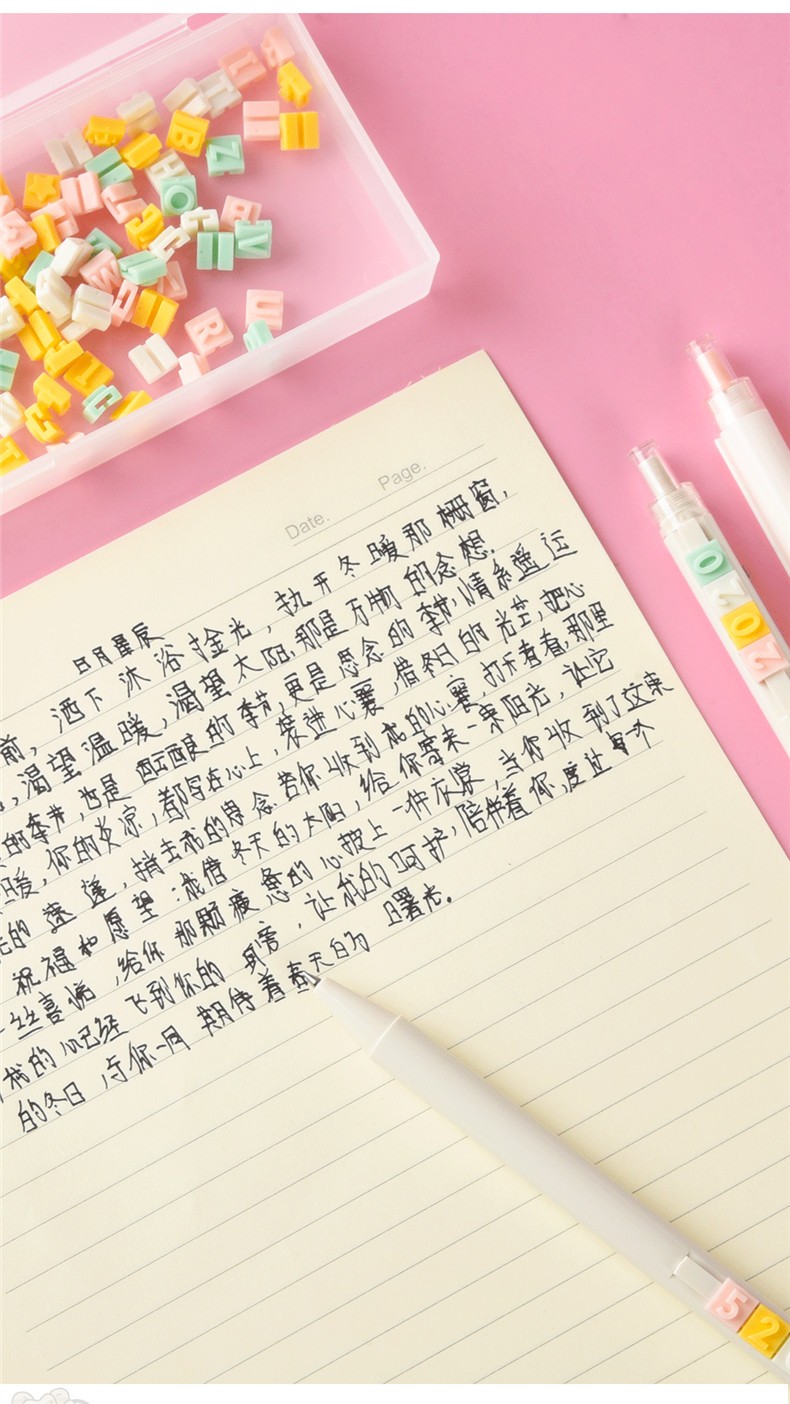 Date.
Page.
日月星辰
前，洒下沐浴金光，执开冬暖那栅窗，
渴望温暖，渴望太阳，那是万物的念想。
的季节，也是酝酿的季节，更是思念的季节，情系遥远
暖，你的炎凉，都写在心上，装进心囊，借冬日的光芒，把心
的速递，捎去我的思念，若你收到我的心囊，打开看看，那里
祝福和愿望：我借冬天的太阳，给你寄来一束阳光，让它
丝喜悦，给你那颗疲惫的心披上一件衣裳，当你收到了这束
我的心已经飞到你的身旁，让我的呵护，陪伴着你，度过每个
的冬日，与你一同期待着春天的曙光。
R
U
B
Z
O
5
2